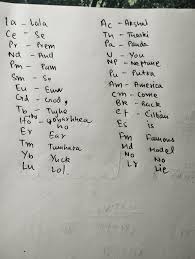 La - Lola
Ce - Se
Pr - Prem
Nd - And
Pm - Pum
Sm - So
Eu - Euw
Gd - God
Tb - Tujhe
Ho -
Er - Ear
Tm - Tumhara
Yb - Yuck
Lu - Lol
Ac - Actual
Th - Tharki
Pa - Panda
U - You
NP - Neptune
Pu - Putra
Am - America
Cm - Come
BK - Back
Cf -
Es - is
Fm - Famous
Md - Model
No - No
Lr - Lie